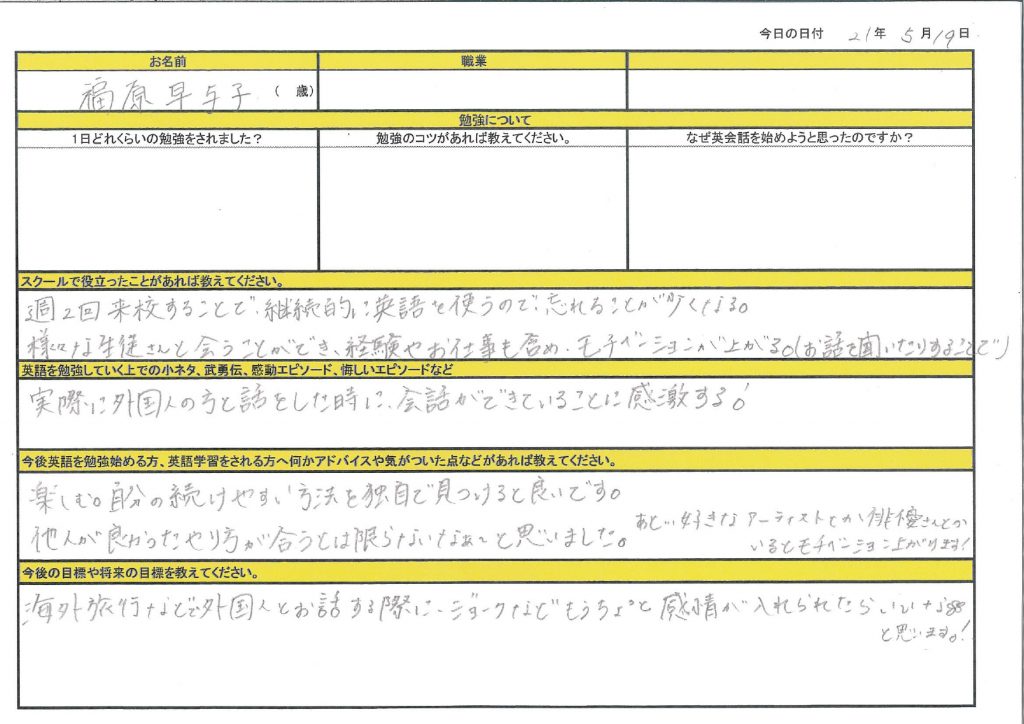 今日の日付 21年 5月19日
お名前 職業
福原早与子 (歳)
勉強について
1日どれくらいの勉強をされました? 勉強のコツがあれば教えてください。 なぜ英会話を始めようと思ったのですか?
スクールで役立ったことがあれば教えてください。
週2回来校することで、継続的に英語を使うので、忘れることが少なくなる。
様々な生徒さんと会うことができ、経験やお仕事も含め、モチベーションが上がる。(お話を聞いたりすることで)
英語を勉強していく上での小ネタ、武勇伝、感動エピソード、悔しいエピソードなど
実際に外国人の方と話をした時に、会話ができていることに感激する!
今後英語を勉強始める方、英語学習をされる方へ何かアドバイスや気がついた点などがあれば教えてください。
楽しむ。自分の続けやすい方法を独自で見つけると良いです。
他人が良かったやり方が合うとは限らないなぁ〜と思いました。
あと…好きなアーティストとか俳優さんとか
いるとモチベーション上がります!
今後の目標や将来の目標を教えてください。
海外旅行などで外国人とお話する際に、ジョークなどもうちょっと感情が入れられたらいいな
と思います。!